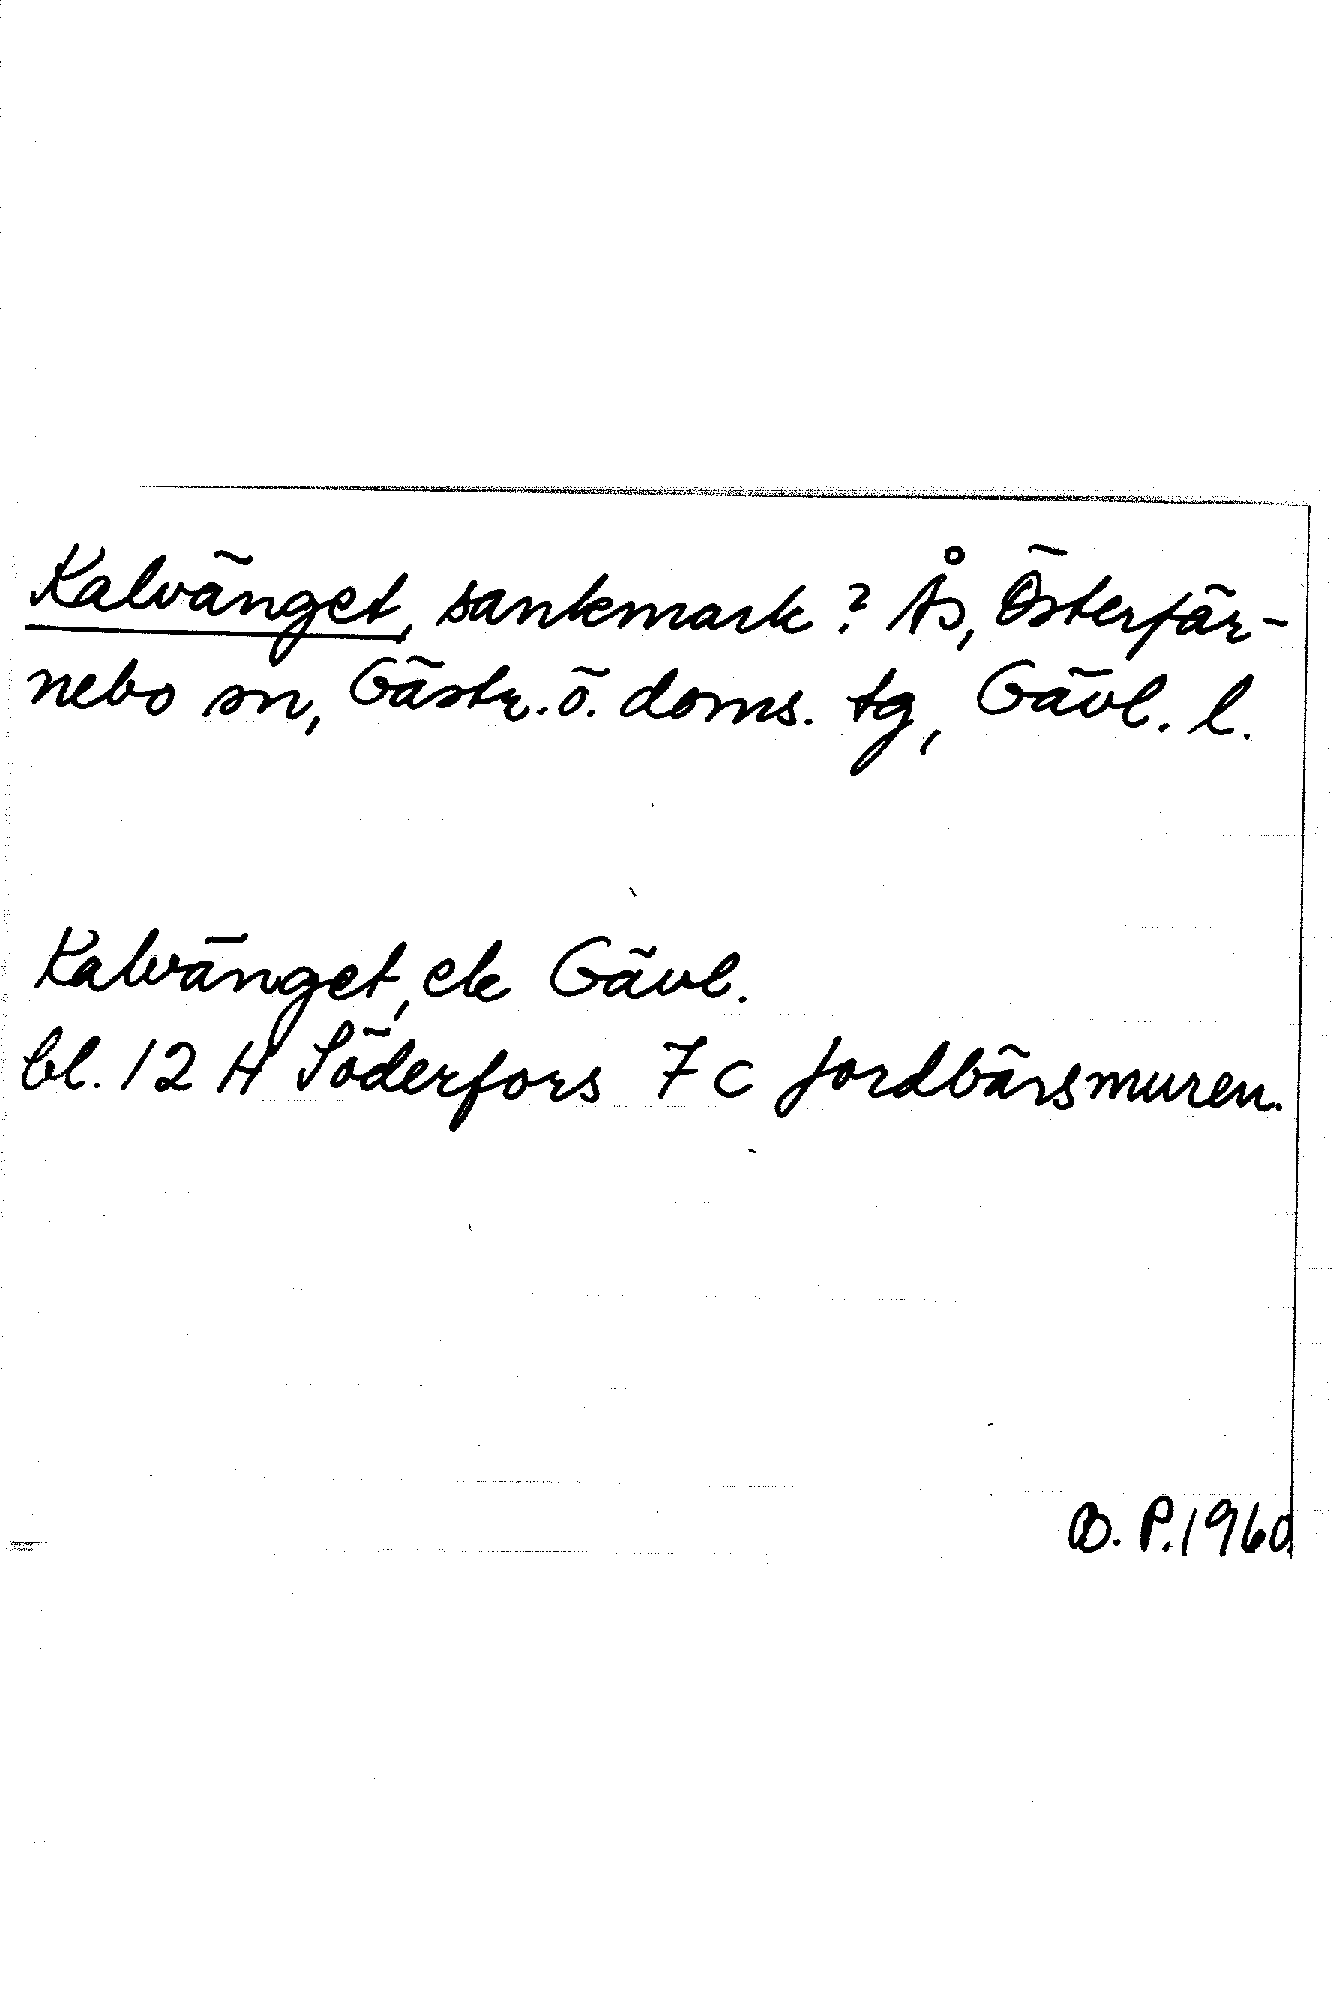 Kalvänget, sankmark? Ås, Österfär-
nebo sn, Gästr. ö. doms. tg, Gävl. l.
Kalvänget, ek Gävl.
bl. 12 H Söderfors 7 c Jordbärsmuren.
B. P. 1960.